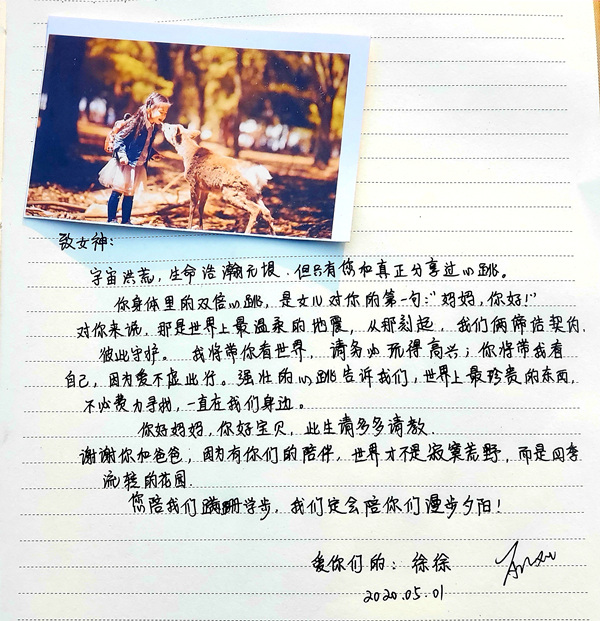 致女神：
宇宙洪荒，生命浩瀚无垠．但只有您和真正分享过心跳。
你身体里的双倍心跳，是女儿对你的第一句："妈妈，你好！"
对你来说，那是世界上最温柔的地震，从那刻起，我们俩缔结契约，
彼此守护。我将带你看世界，请务必玩得高兴；你将带我看
自己，因为爱不虚此行。强壮的心跳告诉我们，世界上最珍贵的东西，
不必费力寻找，一直在我们身边。
你好妈妈，你好宝贝，此生请多多请教．
谢谢你和爸爸，因为有你们的陪伴，世界才不是寂寞荒野，而是四季
流转的花园．
您陪我们蹒跚学步，我们定会陪你们漫步夕阳！
爱你们的：徐徐
2020.05.01